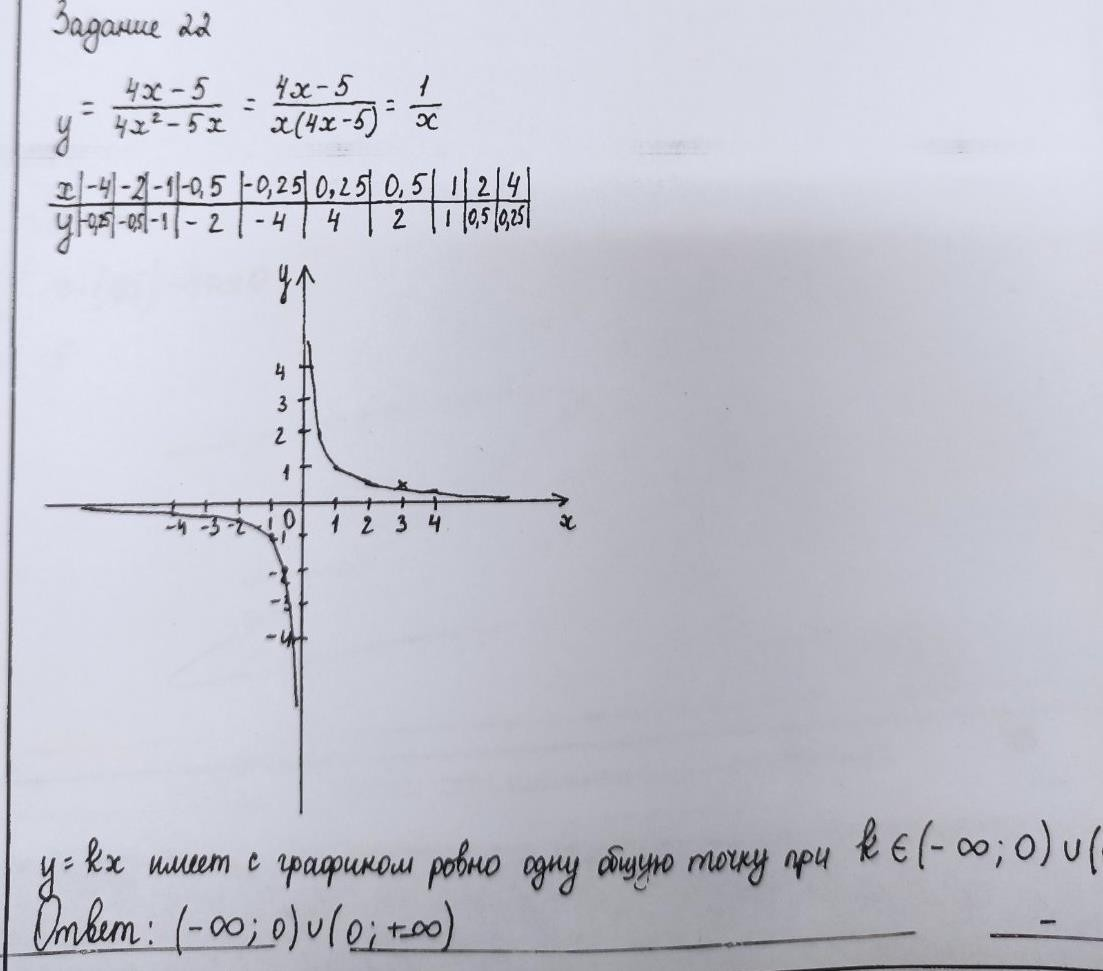 Задание 22
y = (4x - 5)/(4x² - 5x) = (4x - 5)/(x(4x-5)) = 1/x
x | -4 | -2 | -1 | -0,5 | -0,25 | 0,25 | 0,5 | 1 | 2 | 4
y | -0,25 | -0,5 | -1 | -2 | -4 | 4 | 2 | 1 | 0,5 | 0,25
y
4
3
2
1
-4 -3 -2 -1 0 1 2 3 4 x
-1
-2
-3
-4
y = kx имеет с графиком ровно одну общую точку при k ∈ (-∞; 0) ∪ (
Ответ: (-∞; 0) ∪ (0; +∞)